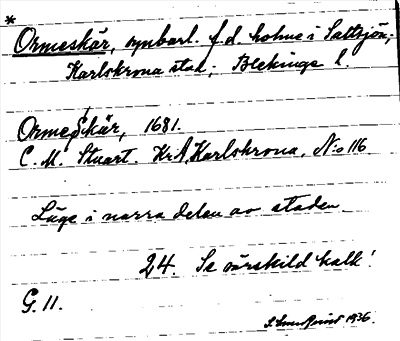 *
Ormeskär, synbarl. f.d. holme i Saltsjön;
Karlskrona stad; Blekinge l.
Ormeskär, 1681.
C. M. Stuart. Kr.A. Karlskrona, No 116
Läge i norra delen av staden.
24. Se särskild kalk!
G. 11.
1936.